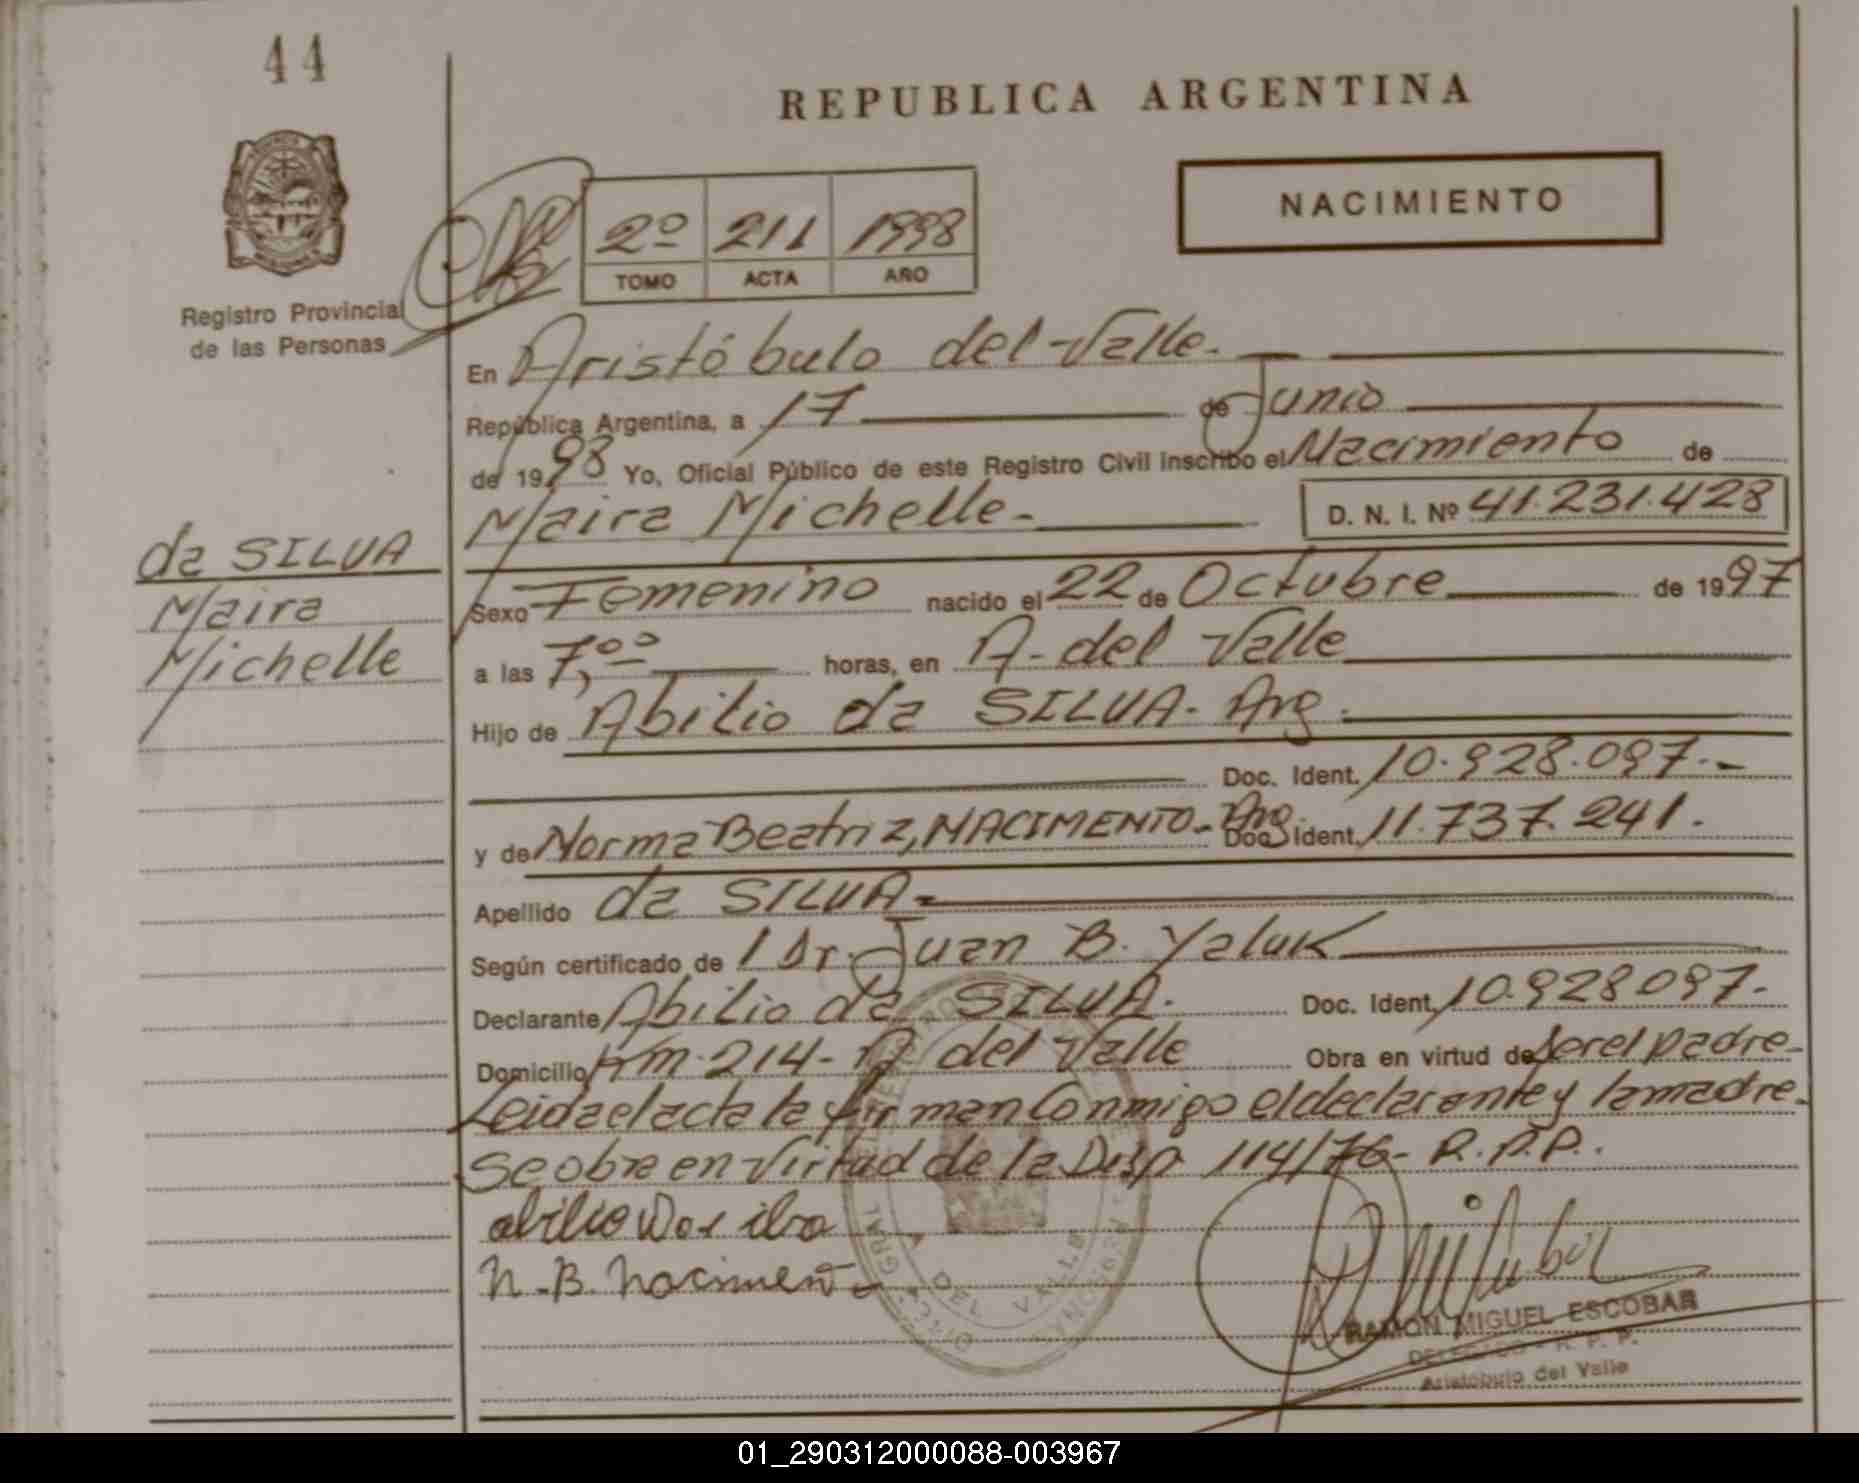 44
REPUBLICA ARGENTINA
NACIMIENTO
2º 211 1998
TOMO ACTA AÑO
Registro Provincial
de las Personas
En Aristóbulo del Valle.
República Argentina, a 17 de Junio
de 1998 Yo, Oficial Público de este Registro Civil inscribo el Nacimiento de
Maira Michelle.- D. N. I. Nº 41.231.428
da SILVA
Maira
Michelle
Sexo Femenino nacido el 22 de Octubre de 1997
a las 7,00 horas, en A. del Valle
Hijo de Abilio da SILVA. Arg.
Doc. Ident. 10.928.097.-
y de Norma Beatriz, NACIMENTO. Arg. Doc. Ident. 11.737.241.
Apellido da SILVA-
Según certificado de 1 Dr. Juan B. Yaluk
Declarante Abilio da SILVA. Doc. Ident. 10.928097.-
Domicilio Km. 214- A del Valle Obra en virtud de ser el padre-
Leida el acta la firman conmigo el declarante y la madre.
se obra en virtud de la Disp. 114/76- R.P.P..
abilio Da silva
N.B. Naciment
RAMON MIGUEL ESCOBAR
DELEGADO - R. P. P.
Aristobulo del Valle
DEL VALLE
01_290312000088-003967